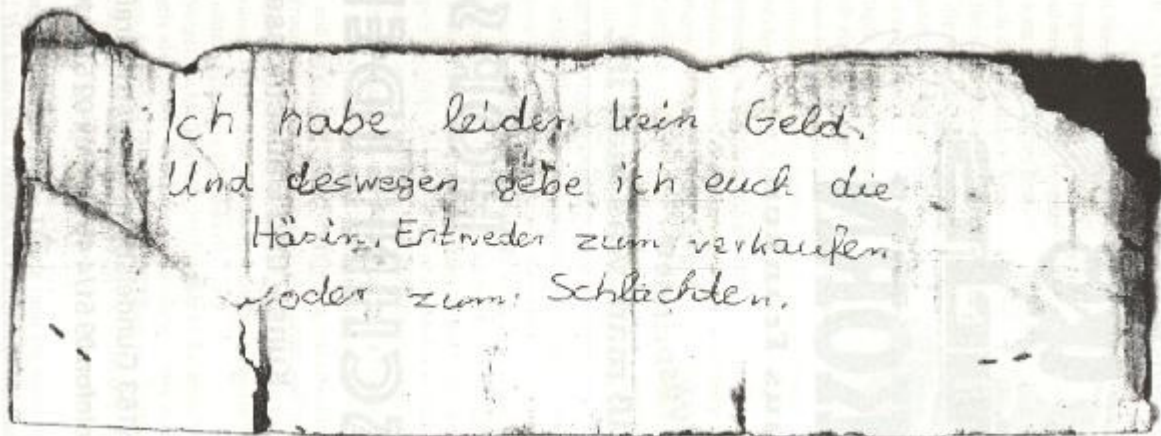 Ich habe leider kein Geld.
Und deswegen gebe ich euch die
Häsin. Entweder zum verkaufen
oder zum Schlachten.